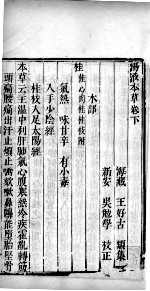 湯液本草卷下
海藏 王好古 類集
新安 吳勉學 校正
木部
桂 桂心 肉桂 桂枝附
氣熱 味甘辛 有小毒
入手少陰經
桂枝入足太陽經
本草云主溫中利肝肺氣心腹寒熱冷疾霍亂轉筋
頭痛腰痛出汗止煩止唾欬嗽鼻齆能墮胎堅骨